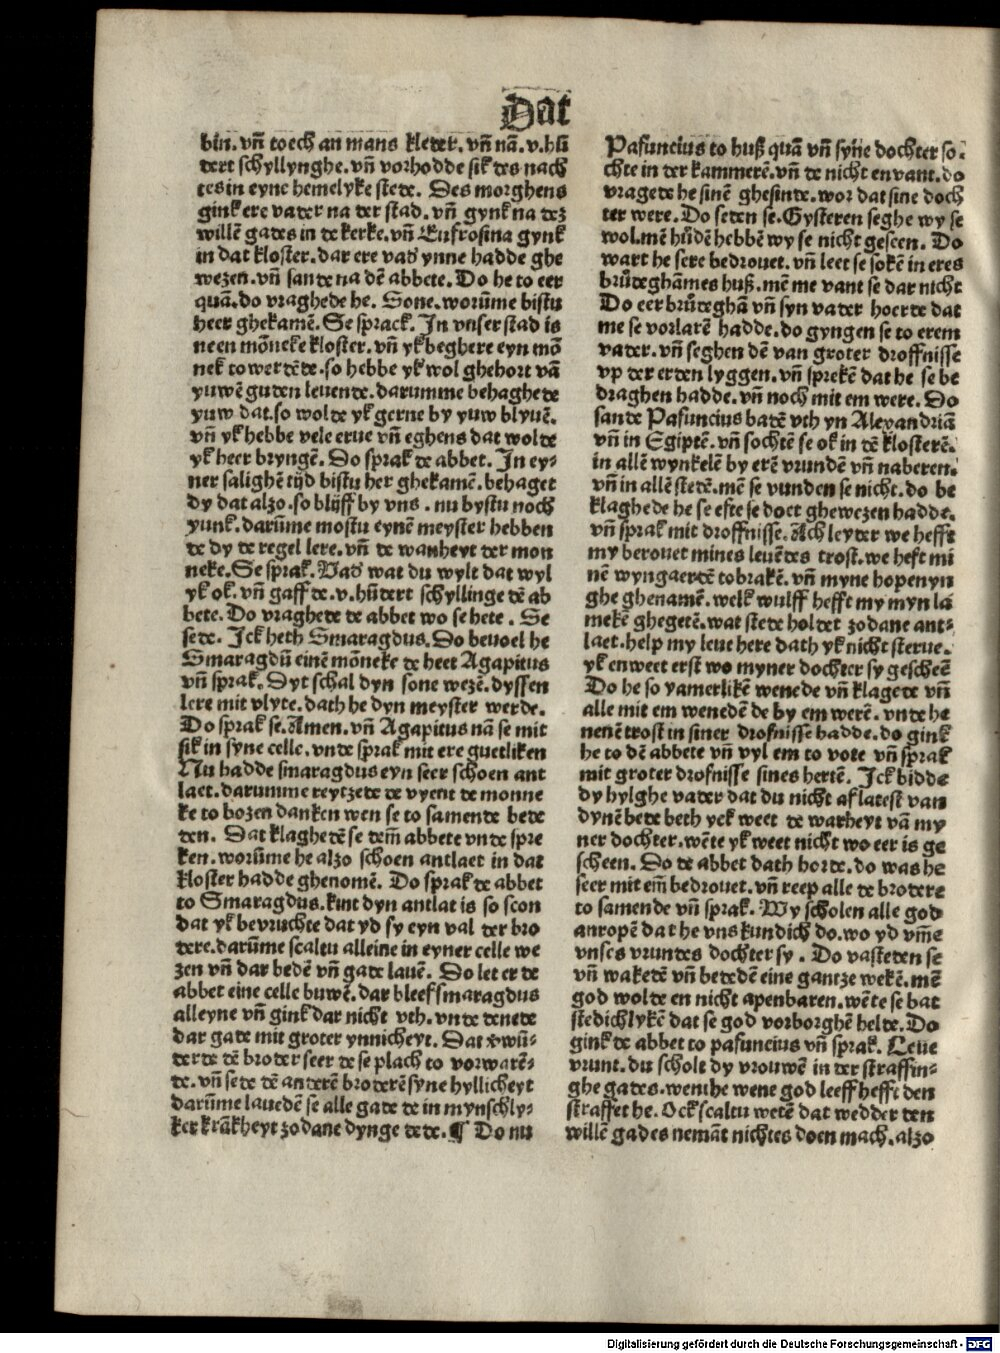 Dat
bin. vñ toech an mans kleder. vñ nã. v. hũ
dert schyllynghe. vñ vorhodde sik des nach
tes in eyne hemelyke stede. Des morghens
gink ere vater na der stad. vñ gynk na dez
willẽ gades in de kerke. vñ Eufrosina gynk
in dat kloster. dar ere vad' ynne hadde ghe
wezen. vñ sande na dẽ abbete. Do he to eer
quã. do vraghede he. Sone. worũme bistu
heer ghekamẽ. Se sprack. In vnser stad is
neen mõneke kloster. vñ yk beghere eyn mõ
nek to werdẽde. so hebbe yk wol ghehort vã
yuwẽ guden leuende. darumme behaghede
yuw dat. so wolde yk gerne by yuw blyuẽ.
vñ yk hebbe vele erue vñ eghens dat wolde
yk heer bryngẽ. Do sprak de abbet. In ey⸗
ner salighẽ tijd bistu her ghekamẽ. behaget
dy dat alzo. so blijff by vns. nu bystu noch
yunk. darũme mostu eynẽ meyster hebben
de dy de regel lere. vñ de wanheyt der mon
neke. Se sprak. Vad' wat du wylt dat wyl
yk ok. vñ gaff de. v. hũdert schyllinge dẽ ab
bete. Do vraghede de abbet wo se hete. Se
sede. Ick heth Smaragdus. Do beuoel he
Smaragdũ einẽ mõneke de heet Agapitus
vñ sprak. Dyt schal dyn sone wezẽ. dyssen
lere mit vlyte. dath he dyn meyster werde.
Do sprak se. Amen. vñ Agapitus nã se mit
sik in syne celle. vnde sprak mit ere guetliken
Nu hadde smaragdus eyn seer schoen ant
laet. darumme reytzede de vyent de monne
ke to bozen danken wen se to samende bede
den. Dat klaghedẽ se dem̃ abbete vnde spre
ken. worũme he alzo schoen antlaet in dat
kloster hadde ghenomẽ. Do sprak de abbet
to Smaragdus. kint dyn antlat is so scon
dat yk bevruchte dat yd sy eyn val der bro
dere. darũme scaltu alleine in eyner celle we
zen vñ dar bedẽ vñ gade lauẽ. Do let er de
abbet eine celle buwẽ. dar bleef smaragdus
alleyne vñ gink dar nicht vth. vnde denede
dar gade mit groter ynnicheyt. Dat v'wũ⸗
derde dẽ broder seer de se plach to vorwarẽ⸗
de. vñ sede dẽ anderẽ broderẽ syne hyllicheyt
darũme lauedẽ se alle gade de in mynschly⸗
ker krãkheyt zodane dynge dede. ¶ Do nu
Pafuncius to huß quã vñ syne dochter so⸗
chte in der kammerẽ. vñ de nicht envant. do
vragede he sinẽ ghesinde. wor dat sine doch
ter were. Do seden se. Gysteren seghe wy se
wol. mẽ hũdẽ hebbẽ wy se nicht geseen. Do
wart he sere bedrouet. vñ leet se sokẽ in eres
brůdeghãmes huß. mẽ me vant se dar nicht
Do eer brůdeghã vñ syn vater hoerde dat
me se vorlarẽ hadde. do gyngen se to erem
vater. vñ seghen dẽ van groter droffnisse
vp der erden lyggen. vñ sprekẽ dat he se be
draghen hadde. vñ noch mit em were. Do
sande Pafuncius badẽ vth yn Alexandriã
vñ in Egiptẽ. vñ sochtẽ se ok in dẽ klosterẽ.
in allẽ wynkelẽ by erẽ vrundẽ vñ naberen.
vñ in allẽ stedẽ. mẽ se vunden se nicht. do be
klaghede he se efte se doet ghewezen hadde.
vñ sprak mit droffnisse. Ach leyder we hefft
my berouet mines leuẽdes trost. we heft mi
nẽ wyngaerdẽ tobrakẽ. vñ myne hopenyn
ghe ghenamẽ. welk wulff hefft my myn la
mekẽ ghegetẽ. wat stede holdet zodane ant⸗
laet. help my leue here dath yk nicht sterue.
yk en weet erst wo myner dochter sy gescheẽ
Do he so yamerlikẽ wenede vñ klagede vñ
alle mit em wenedẽ de by em werẽ. vnde he
nenẽ trost in siner drofnisse hadde. do gink
he to dẽ abbete vñ vyl em to vote vñ sprak
mit groter drofnisse sines hertẽ. Ick bidde
dy hylghe vader dat du nicht af latest van
dynẽ bede beth yck weet de warheyt vã my
ner dochter. wẽte yk weet nicht wo eer is ge
scheen. Do de abbet dath horde. do was he
seer mit em̃ bedrouet. vñ reep alle de brodere
to samende vñ sprak. Wy scholen alle god
anropẽ dat he vns kundich do. wo yd vm̃e
vnses vrundes dochter sy. Do vasteden se
vñ wakedẽ vñ bededẽ eine gantze wekẽ. mẽ
god wolde en nicht apenbaren. wẽte se bat
stedichlykẽ dat se god vorborghẽ helde. Do
gink de abbet to pafuncius vñ sprak. Leue
vrunt. du scholt dy vrouwẽ in der straffin⸗
ghe gades. wenthe wene god leeff hefft den
straffet he. Ock scaltu wetẽ dat wedder den
willẽ gades nemãt nichtes doen mach. alzo
Digitalisierung gefördert durch die Deutsche Forschungsgemeinschaft - DFG